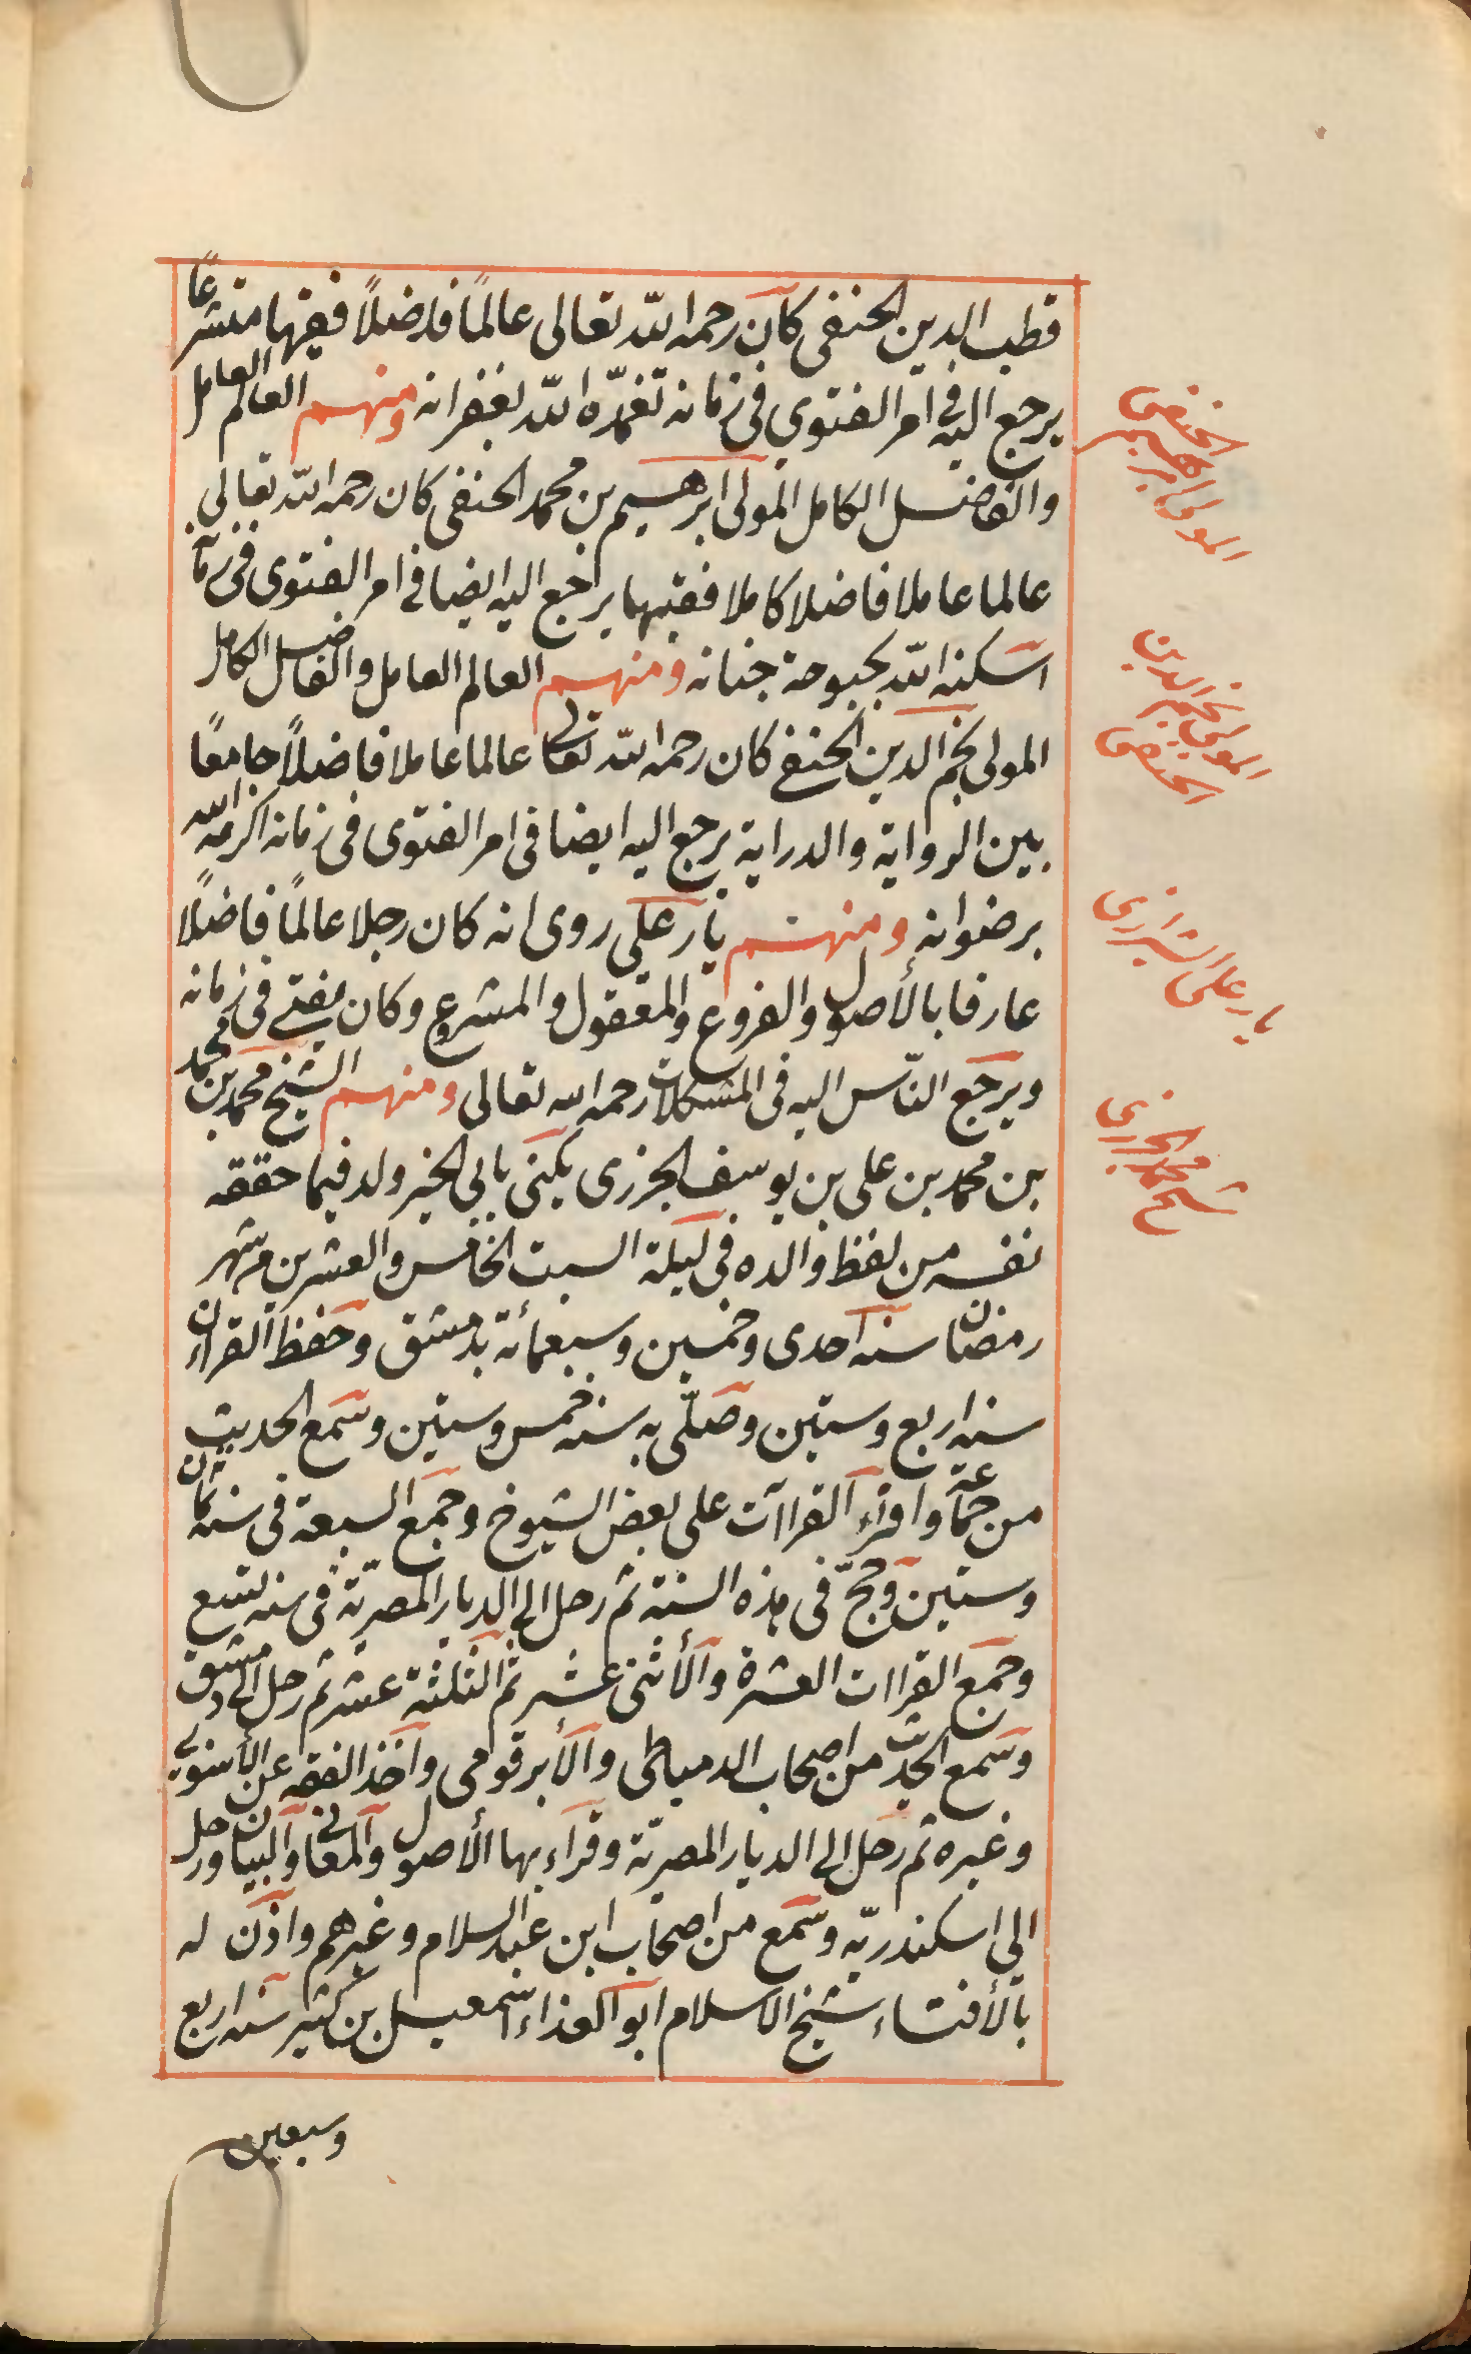 قطب الدين الحنفى كان رحمه الله تعالى عالمًا فاضلًا فقيها متشرعًا
يرجع اليه فى امر الفتوى فى زمانه تغمّده الله بغفرانه ومنهم العالم العامل
والفاضل الكامل المولى ابرهيم بن محمد الحنفى كان رحمه الله تعالى
عالما عاملا فاضلا كاملا فقيها يرجع اليه ايضا فى امر الفتوى فى زمانه
اسكنه الله بحبوحة جنانه ومنهم العالم العامل والفاضل الكامل
المولى نجم الدين الحنفى كان رحمه الله تعالى عالما عاملا فاضلًا جامعًا
بين الرواية والدراية يرجع اليه ايضا فى امر الفتوى فى زمانه اكرمه الله
برضوانه ومنهم يار على روى انه كان رجلا عالمًا فاضلًا
عارفا بالأصول والفروع والمعقول والمشروع وكان يفتى فى زمانه
ويرجع النّاس اليه فى المشكلات رحمه الله تعالى ومنهم الشيخ محمد بن محمد
بن محمد بن على بن يوسف الجزرى يكنى بابى الخير ولد فيما حققه
نفسه من لفظ والده فى ليلة السبت الخامس والعشرين من شهر
رمضان سنه احدى وخمسين وسبعمائة بدمشق وحفظ القران
سنه اربع وستين وصلّى به سنه خمس وستين وسمع الحديث
من جماعة واقراء القراآت على بعض الشيوخ وجمع السبعة فى سنه ثمان
وستين وحجّ فى هذه السنة ثم رحل الى الديار المصريّة فى سنه تسع
وجمع القراات العشرة والأثنى عشر ثم الثلثة عشر ثم رحل الى دمشق
وسمع الحديث من اصحاب الدمياطى والأبرقوهى واخذ الفقه عن الأسنوى
وغيره ثم رحل الى الديار المصريّة وقراء بها الأصول والمعانى والبيان ورحل
الى اسكندريّه وسمع من اصحاب ابن عبد السلام وغيرهم واذن له
بالأفتاء شيخ الاسلام ابو الفداء اسمعيل بن كثير سنه اربع
وسبعين
المولى ابرهيم
الحنفى
المولى نجم الدين
الحنفى
يار على الشيرازى
شيخ محمد الجزرى